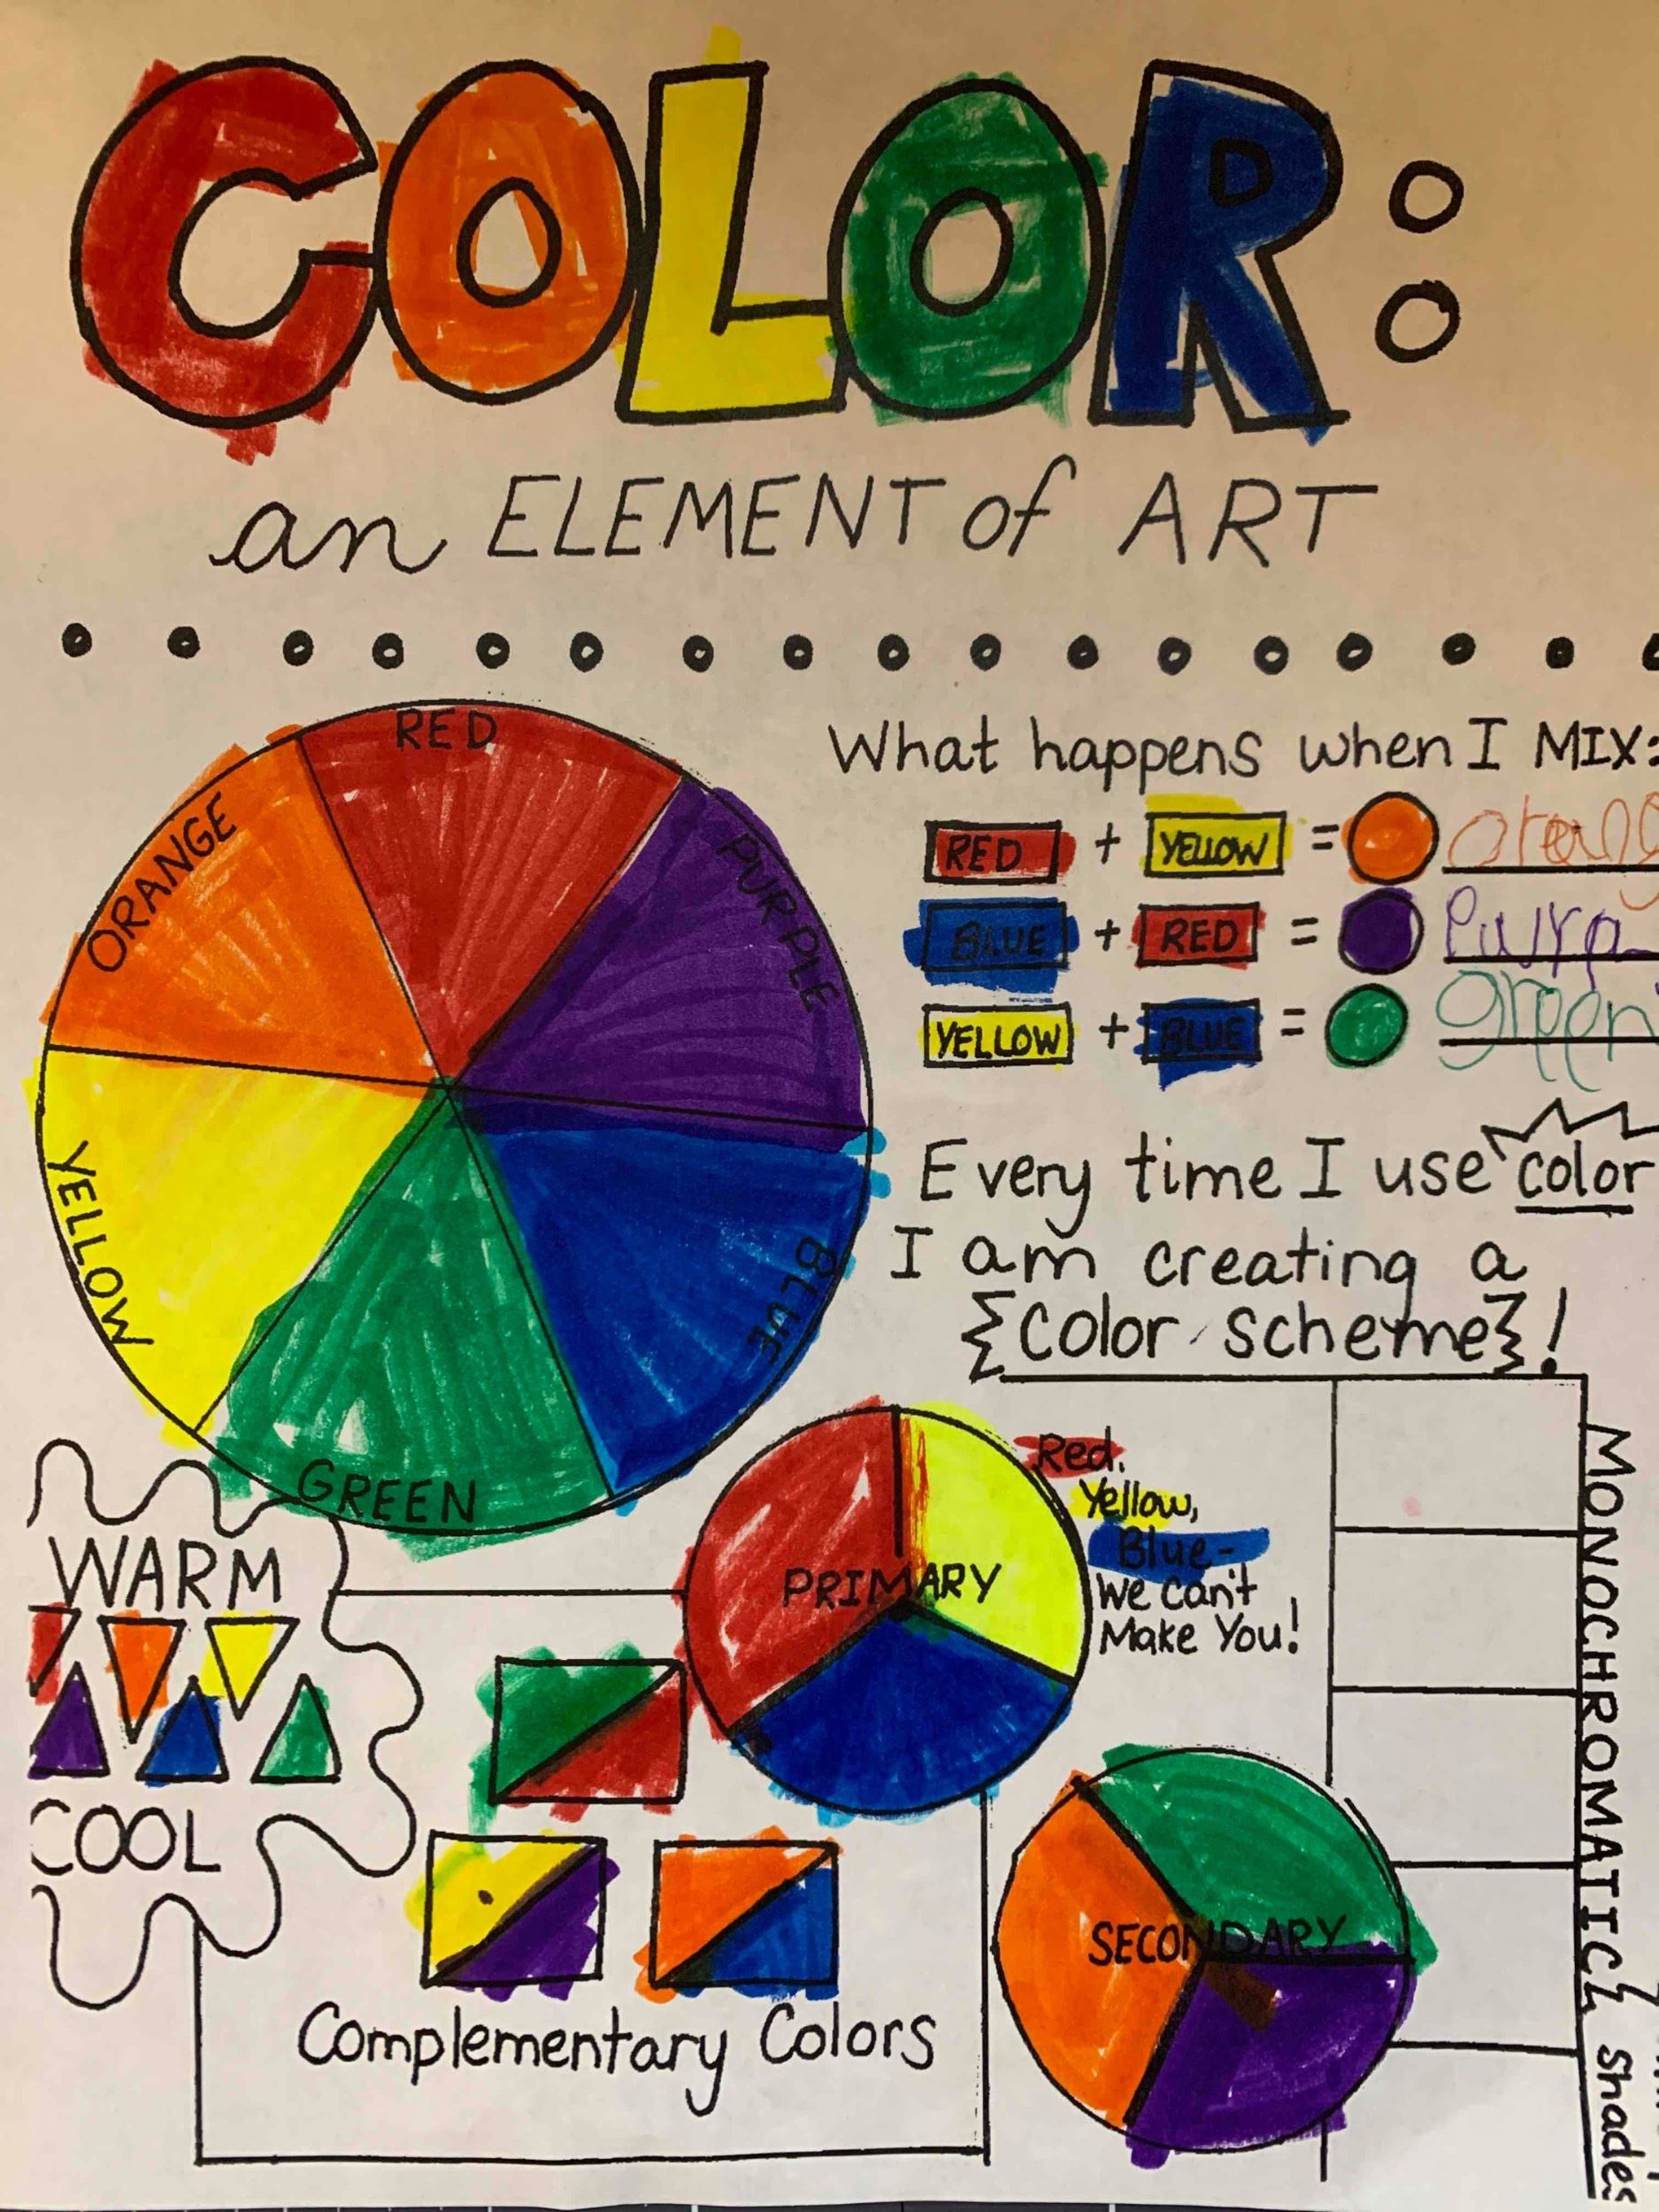 COLOR:
an ELEMENT of ART
RED
PURPLE
BLUE
GREEN
YELLOW
ORANGE
What happens when I MIX:
RED + YELLOW = orang
BLUE + RED = Purp
YELLOW + BLUE = green
Every time I use color
I am creating a
{Color scheme}!
PRIMARY
Red,
Yellow,
Blue-
We Can't
Make You!
WARM
COOL
Complementary Colors
SECONDARY
MONOCHROMATIC
shades